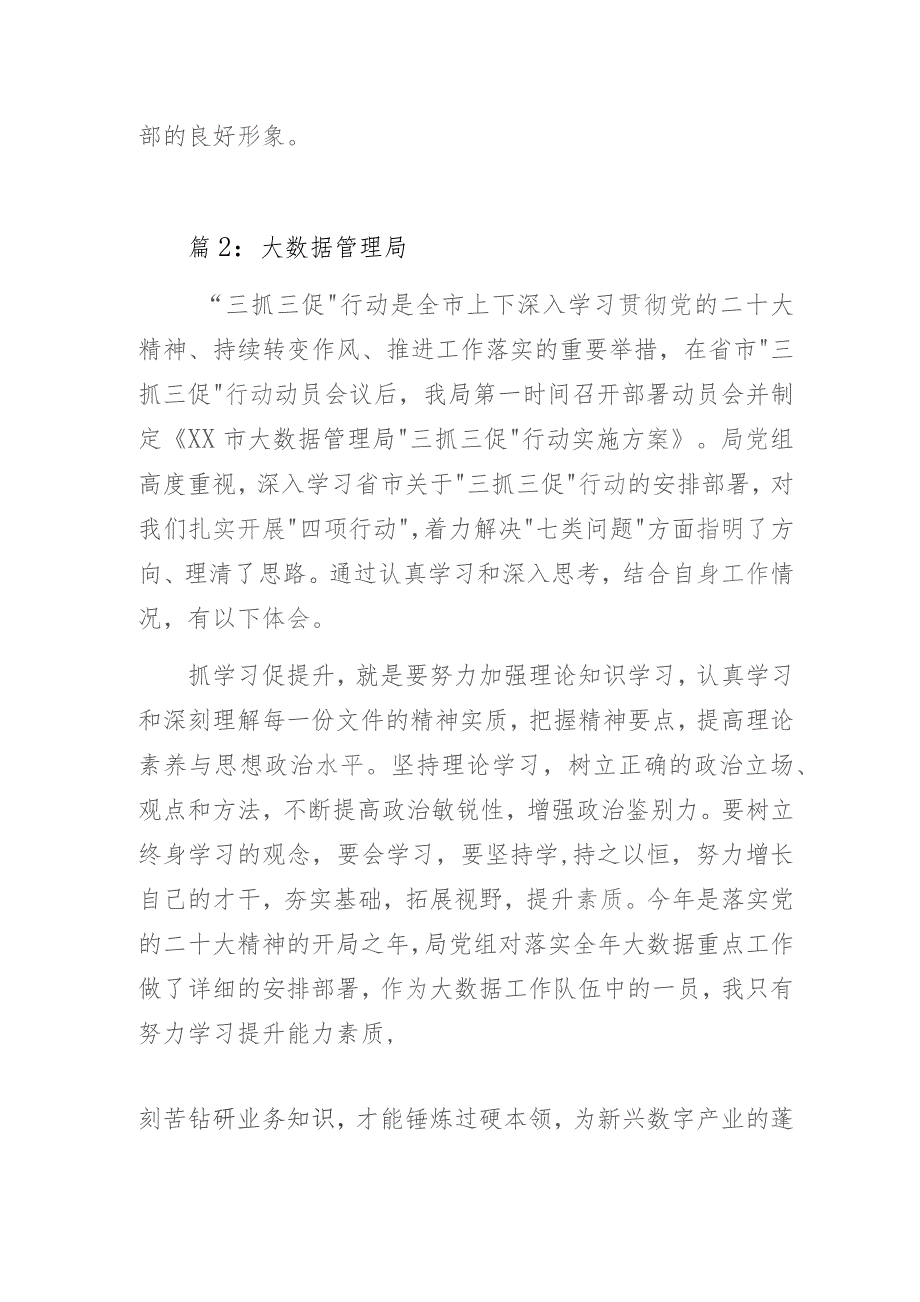 部的良好形象。
篇2：大数据管理局
“三抓三促"行动是全市上下深入学习贯彻党的二十大
精神、持续转变作风、推进工作落实的重要举措，在省市"三
抓三促"行动动员会议后，我局第一时间召开部署动员会并制
定《XX市大数据管理局"三抓三促"行动实施方案》。局党组
高度重视，深入学习省市关于"三抓三促"行动的安排部署，对
我们扎实开展"四项行动",着力解决"七类问题"方面指明了方
向、理清了思路。通过认真学习和深入思考，结合自身工作情
况，有以下体会。
抓学习促提升，就是要努力加强理论知识学习，认真学习
和深刻理解每一份文件的精神实质，把握精神要点，提高理论
素养与思想政治水平。坚持理论学习，树立正确的政治立场、
观点和方法，不断提高政治敏锐性，增强政治鉴别力。要树立
终身学习的观念，要会学习，要坚持学,持之以恒，努力增长
自己的才干，夯实基础，拓展视野，提升素质。今年是落实党
的二十大精神的开局之年，局党组对落实全年大数据重点工作
做了详细的安排部署，作为大数据工作队伍中的一员，我只有
努力学习提升能力素质,
刻苦钻研业务知识，才能锤炼过硬本领，为新兴数字产业的蓬